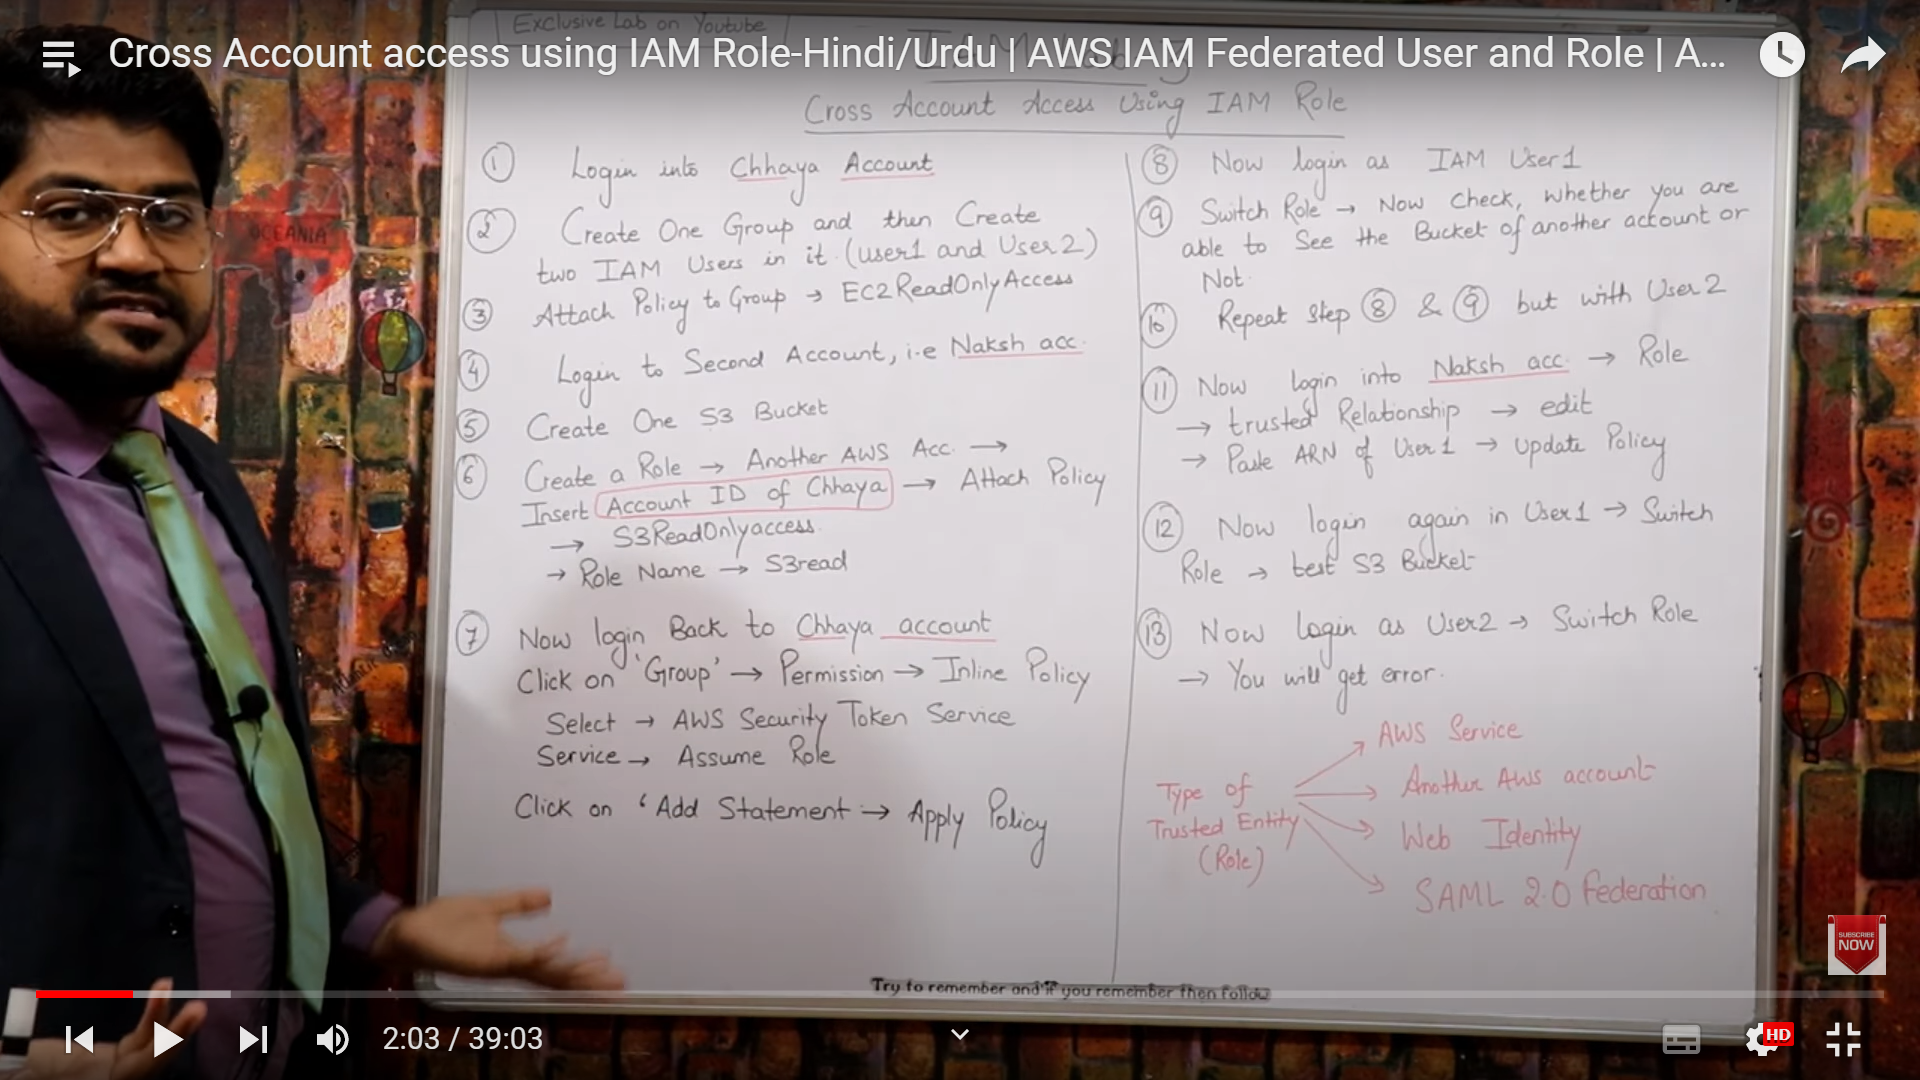 Exclusive Lab on Youtube
Cross Account access using IAM Role-Hindi/Urdu | AWS IAM Federated User and Role | A...
Cross Account Access Using IAM Role
① Login into Chhaya Account
② Create One Group and then Create
two IAM Users in it (user1 and User2)
③ Attach Policy to Group → EC2ReadOnlyAccess
④ Login to Second Account, i.e Naksh acc.
⑤ Create One S3 Bucket
⑥ Create a Role → Another AWS Acc. →
Insert Account ID of Chhaya → Attach Policy
→ S3ReadOnlyaccess
→ Role Name → S3read
⑦ Now login Back to Chhaya account
Click on 'Group' → Permission → Inline Policy
Select → AWS Security Token Service
Service → Assume Role
Click on ‘Add Statement → Apply Policy
⑧ Now login as IAM User1
⑨ Switch Role → Now Check, whether you are
able to See the Bucket of another account or
Not.
⑩ Repeat Step ⑧ & ⑨ but with User2
⑪ Now login into Naksh acc. → Role
→ trusted Relationship → edit
→ Paste ARN of User1 → update Policy
⑫ Now login again in User1 → Switch
Role → test S3 Bucket
⑬ Now Login as User2 → Switch Role
→ You will get error.
Type of
Trusted Entity
(Role)
AWS Service
Another AWS account
Web Identity
SAML 2.0 Federation
OCEANIA
SUBSCRIBE
NOW
Try to remember and if you remember then follow
2:03 / 39:03
HD